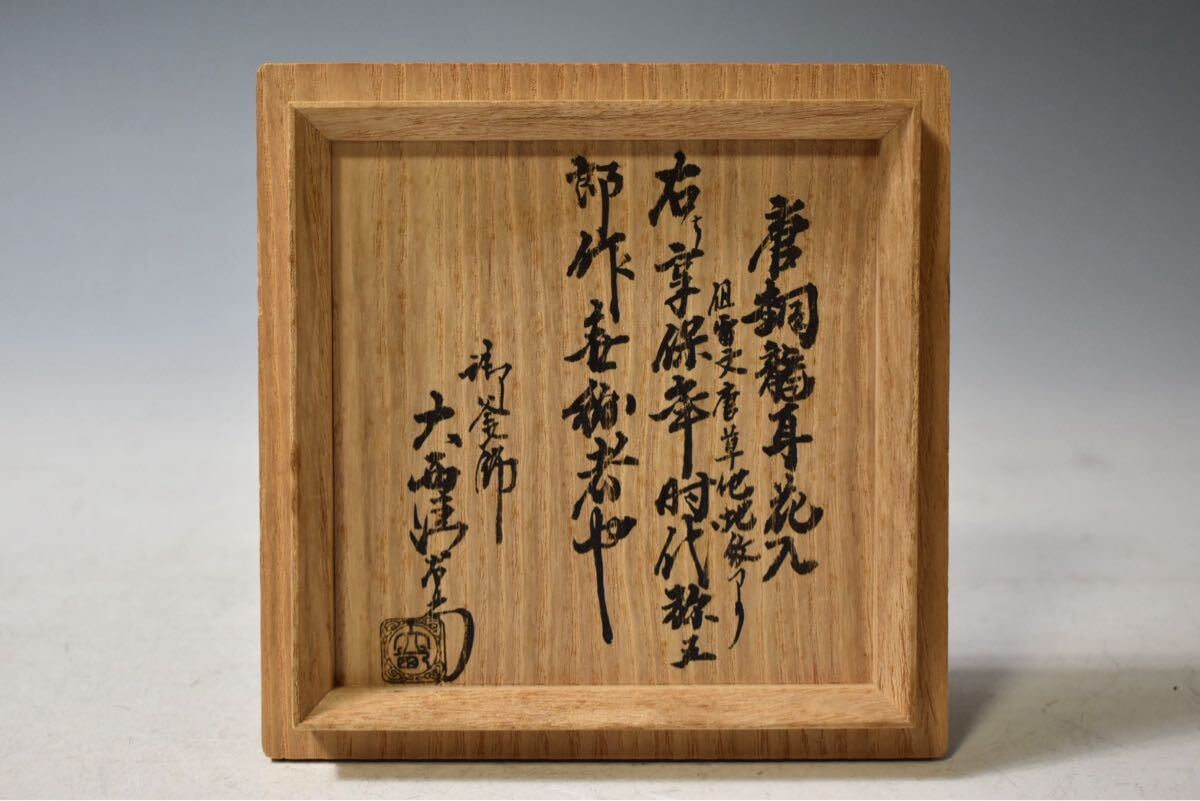 唐銅龍耳花入
雷文唐草地紋アリ
右ハ享保年時代弥五
郎作無紛者也
御釜師
大西清右衛門